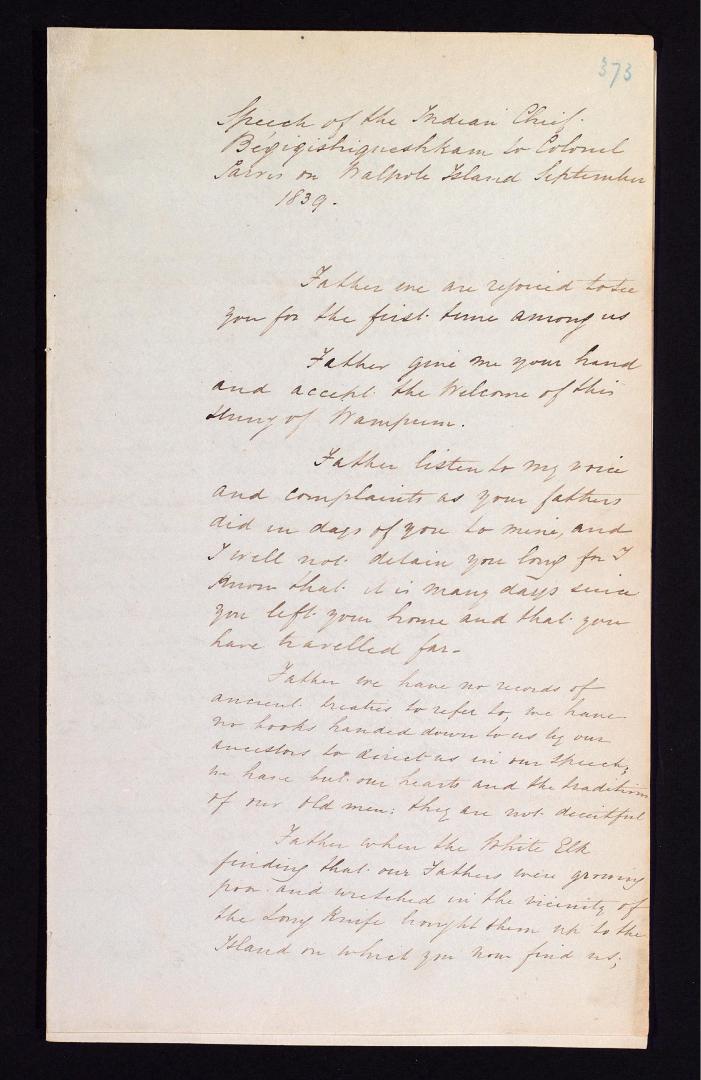 373
Speech of the Indian Chief
Begigishigueshkam to Colonel
Jarvis on Walpole Island September
1839.
Father we are rejoiced to see
you for the first time among us
Father give me your hand
and accept the Welcome of this
String of Wampum.
Father listen to my voice
and complaints as your fathers
did in days of you to mine, and
I will not detain you long for I
Know that it is many days since
you left your home and that you
have travelled far-
Father we have no records of
ancient treaties to refer to, we have
no books handed down to us by our
ancestors to direct us in our speech;
we have but our hearts and the traditions
of our old men: they are not deceitful
Father when the White Elk
finding that our Fathers were growing
poor and wretched in the vicinity of
the Long Knife brought them up to the
Island on which you now find us;